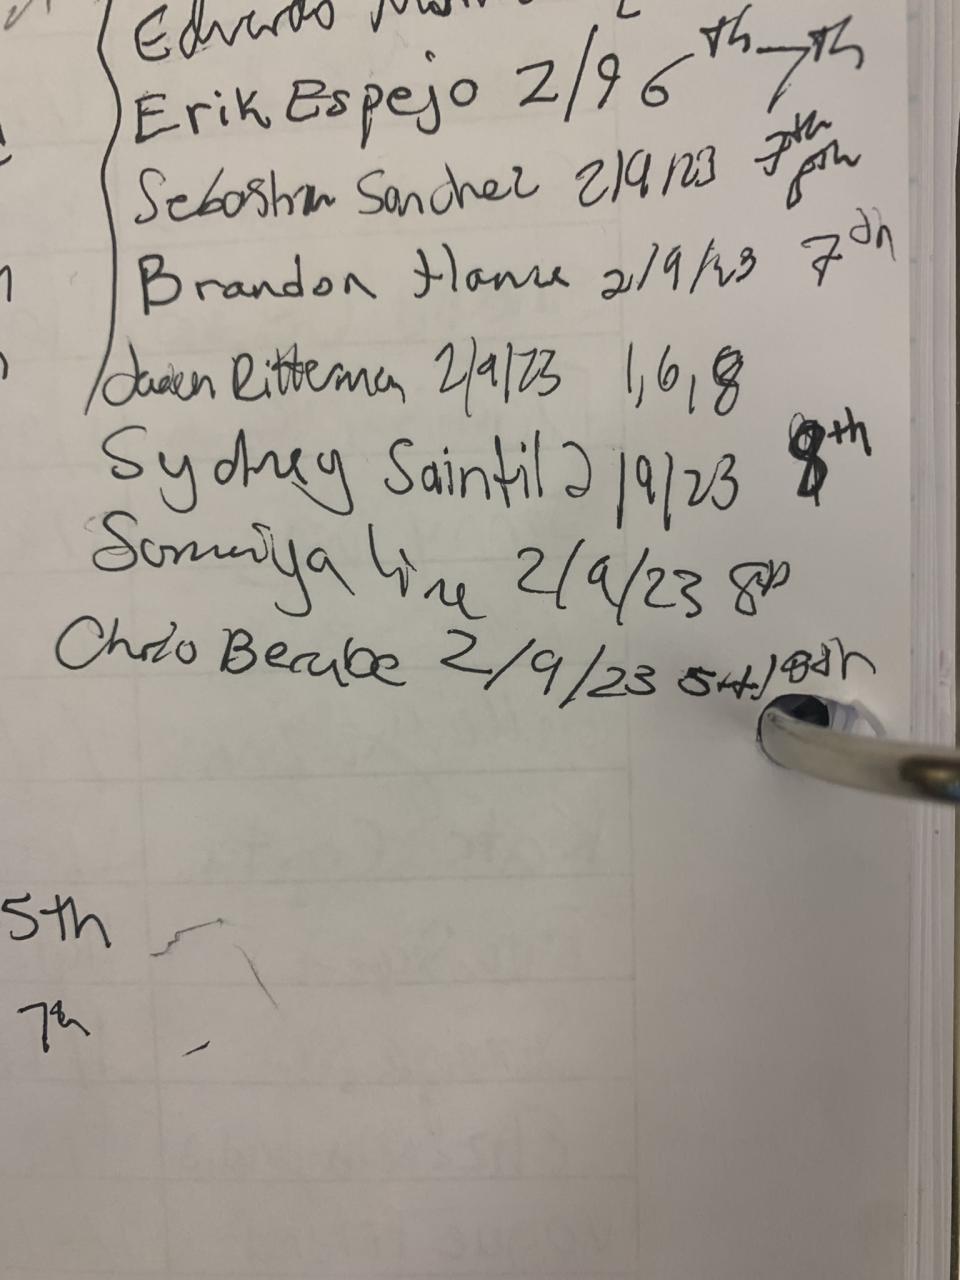 Eduardo
Erik Espejo 2/9 6th-7th
Sebastian Sanchez 2/9/23 7th 8th
Brandon 2/9/23 7th
Jaden Ritterman 2/9/23 1,6,8
Sydney Saintil 2/9/23 8th
Line 2/9/23 8th
Chris Berube 2/9/23 5th/8th
5th
7th